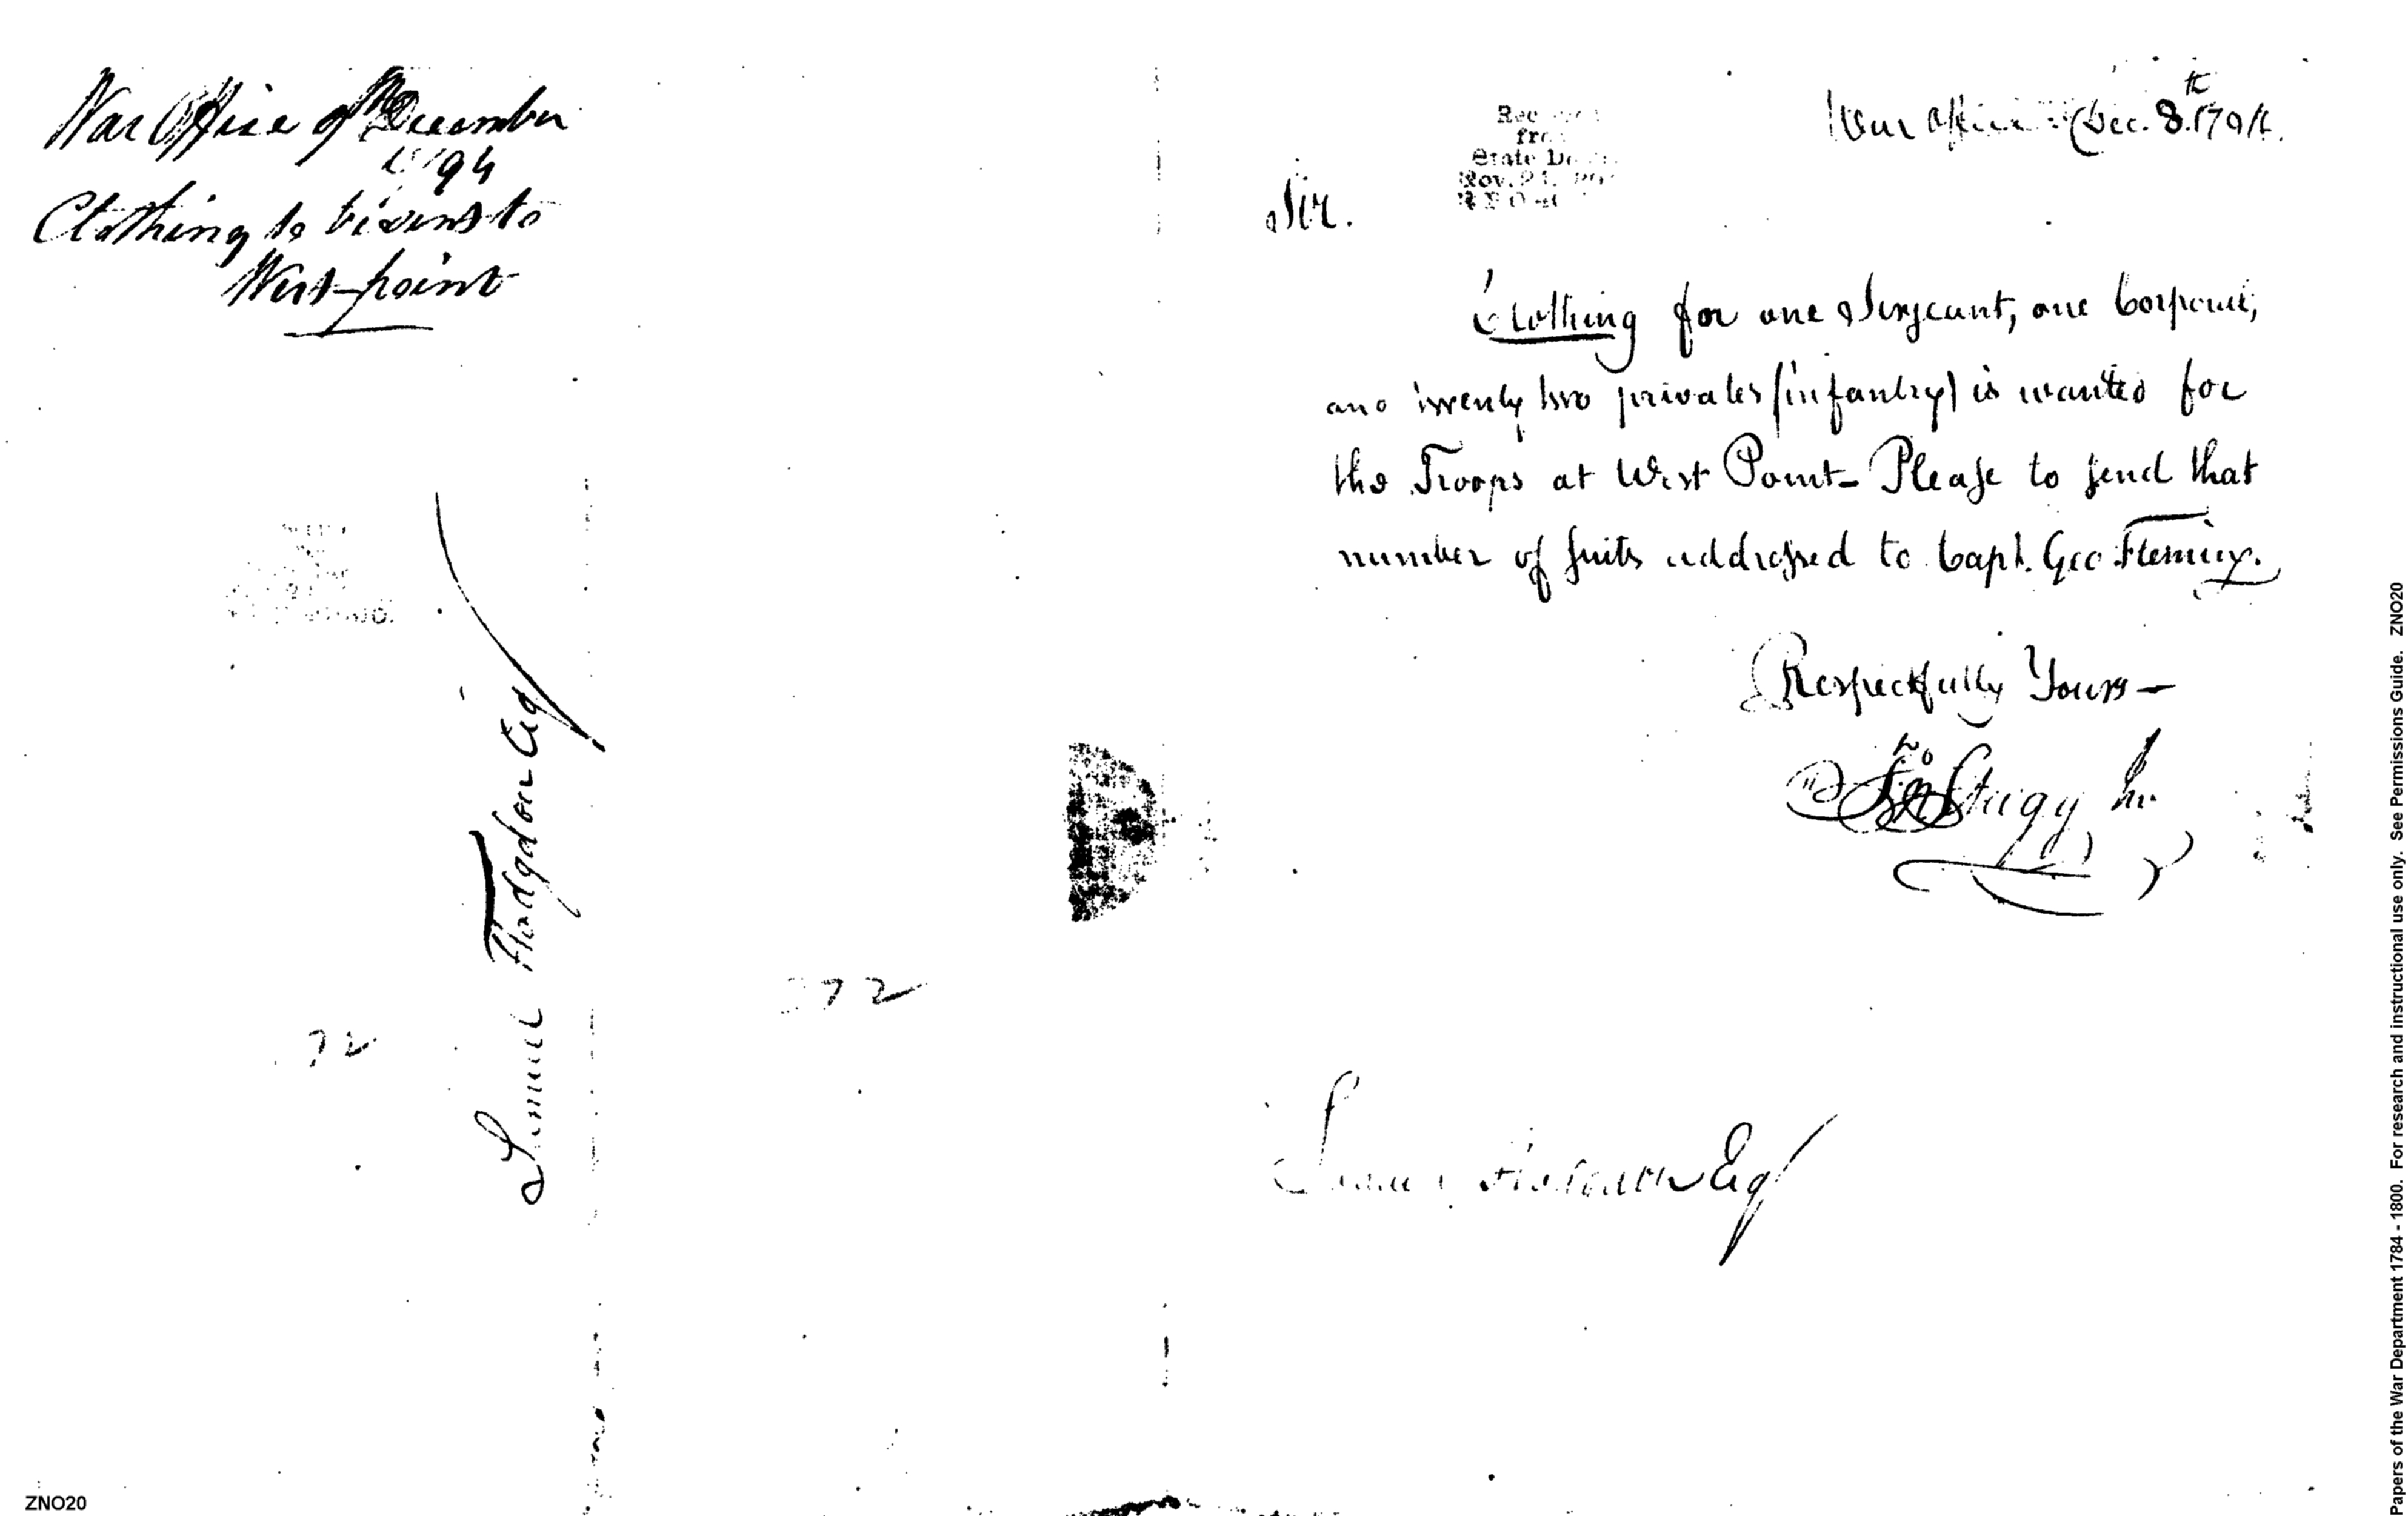 War Office 9th December
1794
Clothing to be sent to
West-point
Samuel Hodgdon Esq
72
372
War Office Dec. 8th. 1794.
from
State De
Nov. 21.
Sir.
Clothing for one Sergeant, one Corporal,
and twenty two privates (infantry) is wanted for
the Troops at West Point– Please to send that
number of suits addressed to Capt. Geo Fleming.
Respectfully Yours—
Jno Stagg Jr.
Samuel Hodgdon Esq
ZNO20
Papers of the War Department 1784 - 1800. For research and instructional use only. See Permissions Guide. ZNO20